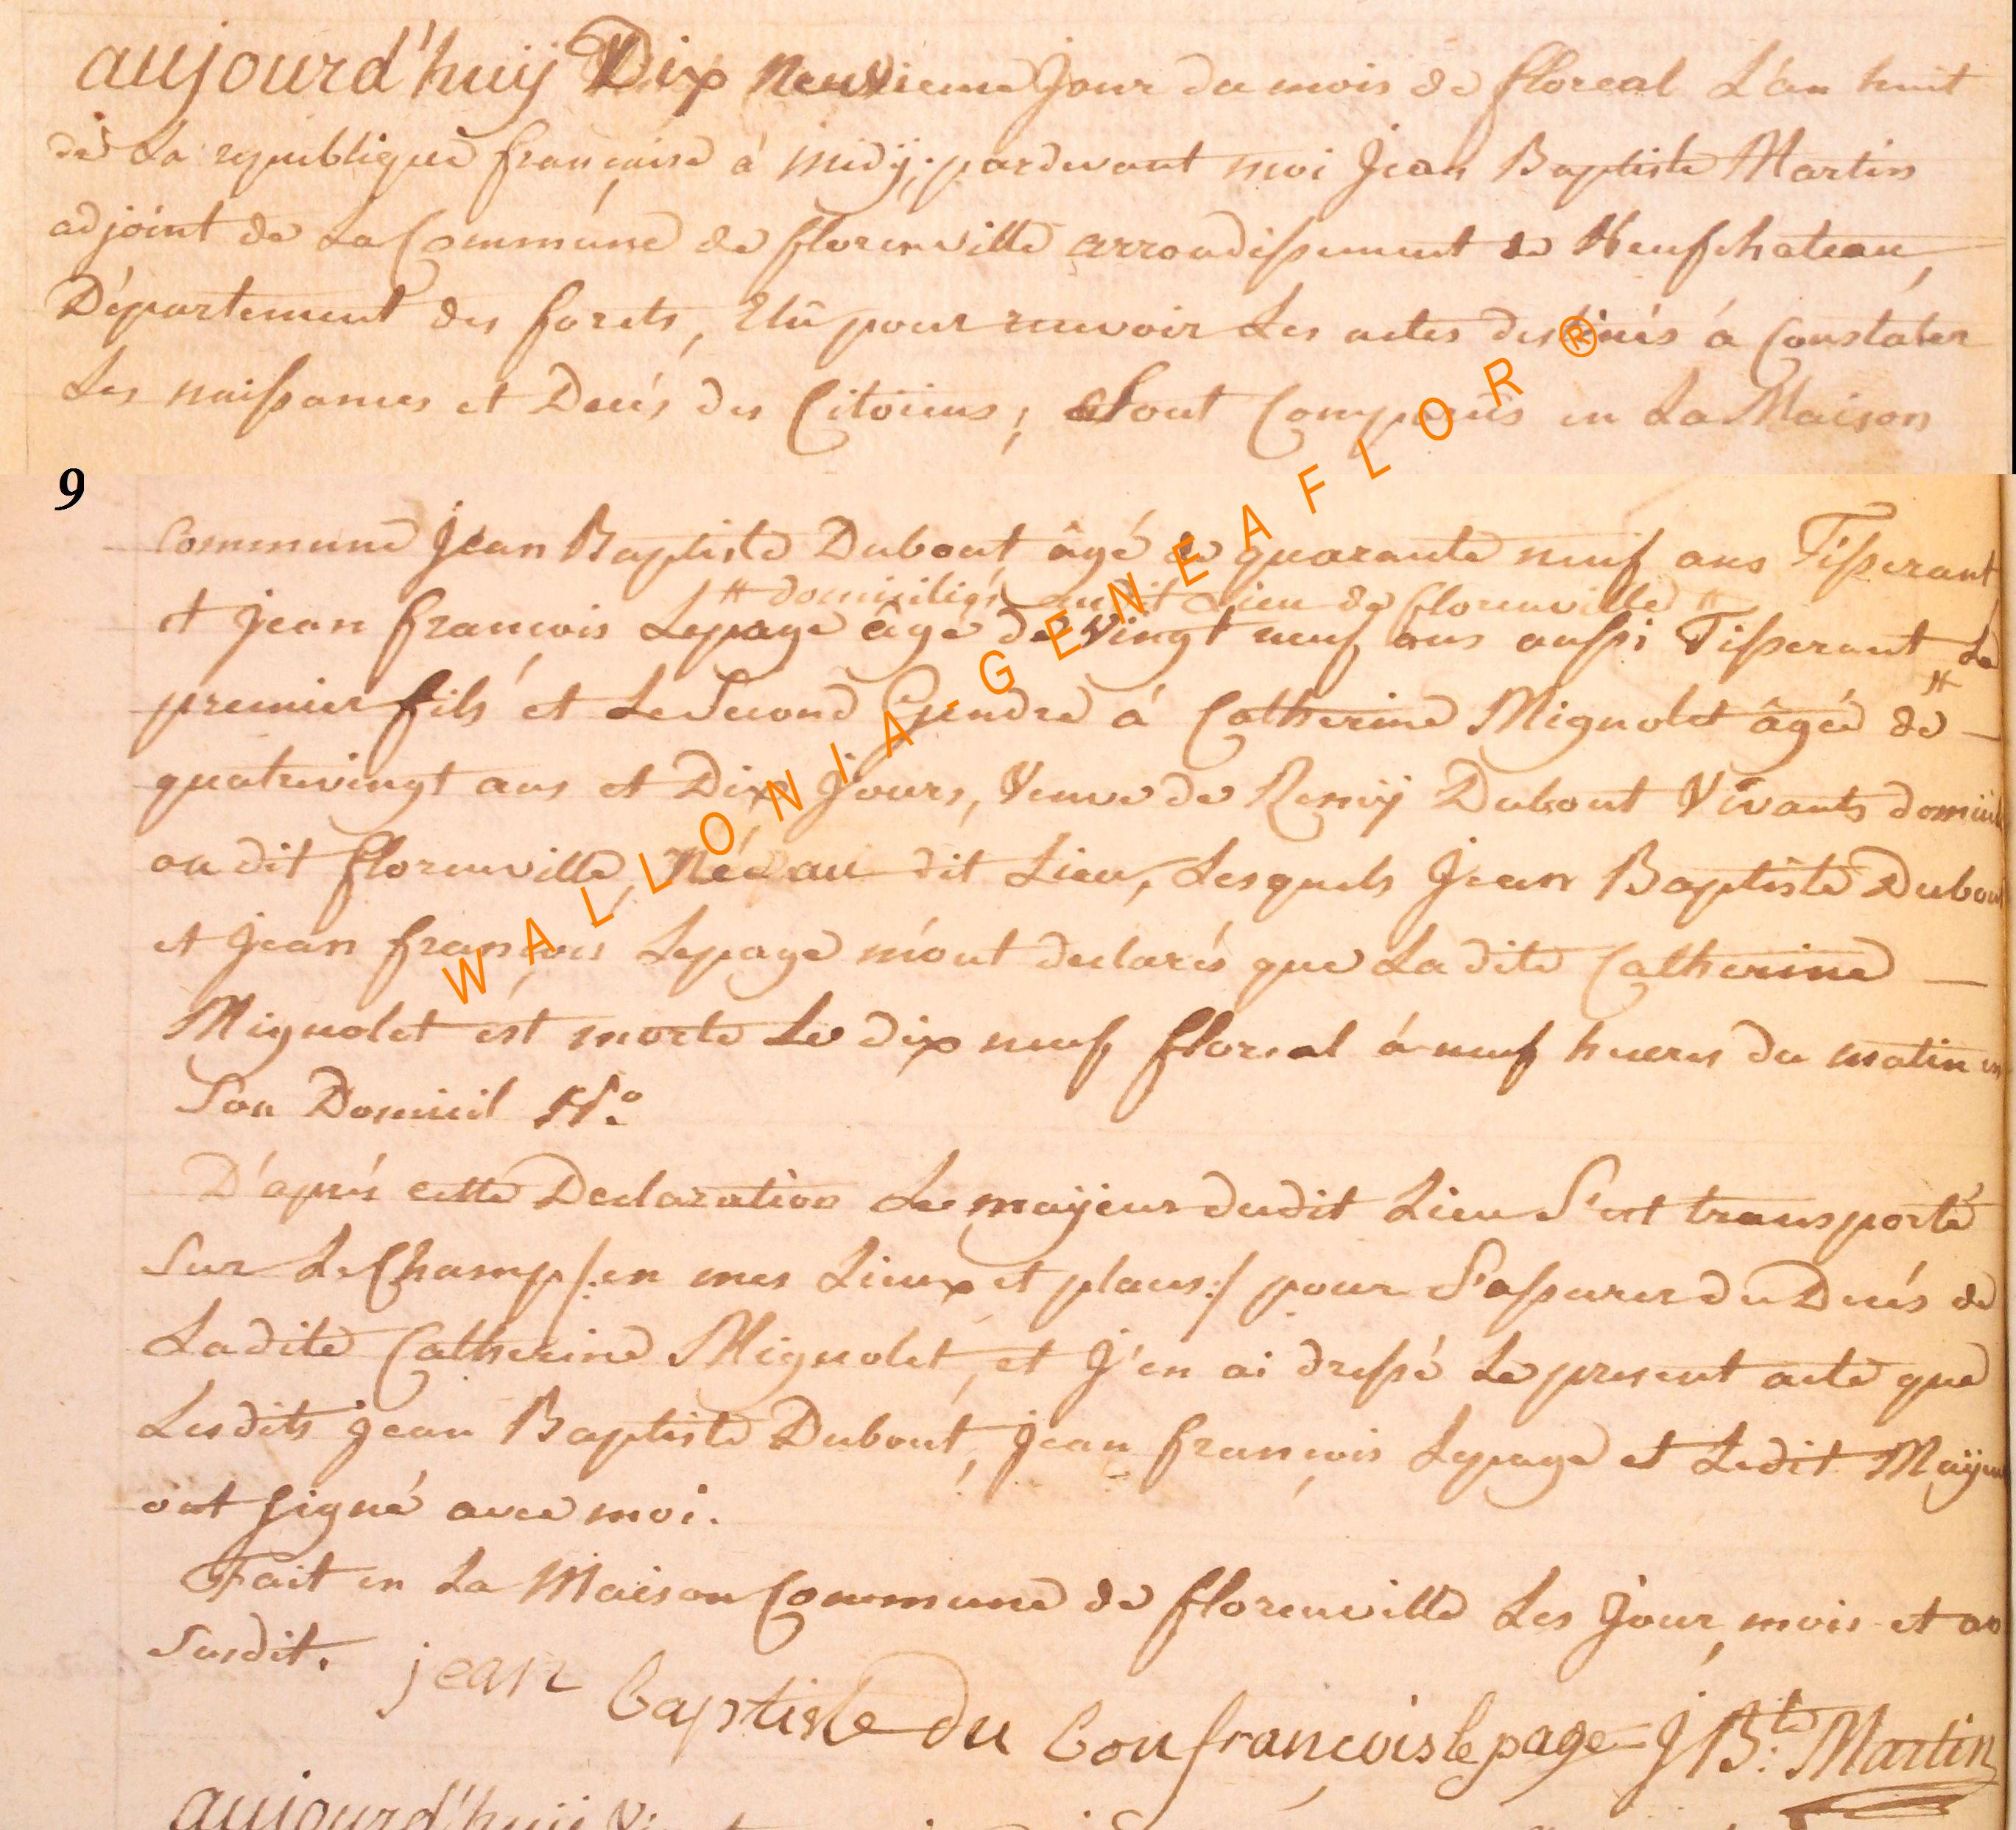 aujourd'huÿ Dix Neuvieme Jour du mois de floreal L'an huit
de La republique française à midÿ, pardevant moi Jean Baptiste Martin
adjoint de La Commune de florenville arrondissement de Neufchateau,
Département des forets, Elû pour recevoir Les actes destinés à Constater
Les naissances et Decés des Citoiens, Sont Comparûs en La Maison
9
Commune Jean Baptiste Dubout âgé de quarante neuf ans Tisserant
# domiciliés audit Lieu de florenville #
et Jean françois Lepage âgé de vingt neuf ans aussi Tisserant #, Le
premier fils et Le Second Gendre à Catherine Mignolet âgée de
quatrevingt ans et Dix Jours, Veuve de Remÿ Dubout Vivants domicil
au dit florenville, Née au dit Lieu, Lesquels Jean Baptiste Dubout
et Jean françois Lepage m'ont declarés que Ladite Catherine
Mignolet est morte Le dix neuf floreal à neuf heures du matin en
Son Domicil
D'aprés cette Declaration Le maÿeur dudit Lieu S'est transporté
Sur Le Champ /:en mes Lieux et places:/ pour S'assurer du Decés de
Ladite Catherine Mignolet, et J'en ai dressé Le present acte que
Lesdits Jean Baptiste Dubout, Jean françois Lepage et Ledit Maÿeur
ont signé avec moi.
Fait en La Maison Commune de florenville Les Jour, mois et an
Susdit.
jean baptiste du bou françois lepage J B:te Martin
aujourd'huÿ
WALLONIA-GENEAFLOR®